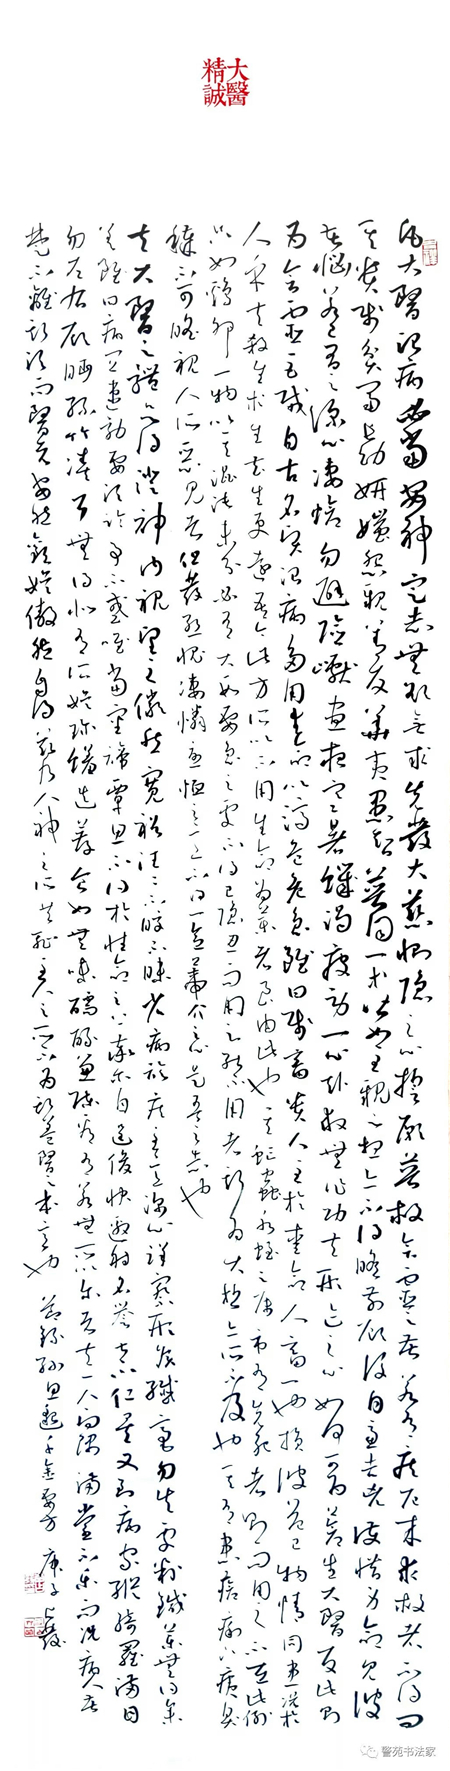 大醫
精誠
凡大醫治病必當安神定志無欲無求先發大慈惻隱之心誓願普救含靈之苦若有疾厄來求救者不得問
其貴賤貧富長幼妍媸怨親善友華夷愚智普同一等皆如至親之想亦不得瞻前顧後自慮吉凶護惜身命見彼
苦惱若己有之深心悽愴勿避險巇晝夜寒暑飢渴疲勞一心赴救無作功夫形跡之心如此可為蒼生大醫反此則
為含靈巨賊自古名賢治病多用生命以濟危急雖曰賤畜貴人至於愛命人畜一也損彼益己物情同患況於
人乎夫殺生求生去生更遠吾今此方所以不用生命為藥者良由此也其虻蟲水蛭之屬市有先死者則市而用之不在此例
只如雞卵一物以其混沌未分必有大段要急之處不得已隱忍而用之能不用者斯為大哲亦所不及也其有患瘡痍下痢臭
穢不可瞻視人所惡見者但發慚愧悽憐憂恤之意不得起一念蒂芥之心是吾之志也
夫大醫之體欲得澄神內視望之儼然寬裕汪汪不皎不昧省病診疾至意深心詳察形候纖毫勿失處判鍼藥無得參
差雖曰病宜速救要須臨事不惑唯當審諦覃思不得於性命之上率爾自逞俊快邀射名譽甚不仁矣又到病家縱綺羅滿目
勿左右顧眄絲竹湊耳無得似有所娛珍饈迭薦食如無味醽醁兼陳看有若無所以爾者夫一人向隅滿堂不樂而況病人苦
楚不離斯須而醫者安然歡娛傲然自得茲乃人神之所共恥至人之所不為斯蓋醫之本意也 節錄孫思邈千金要方 庚子
警苑书法家